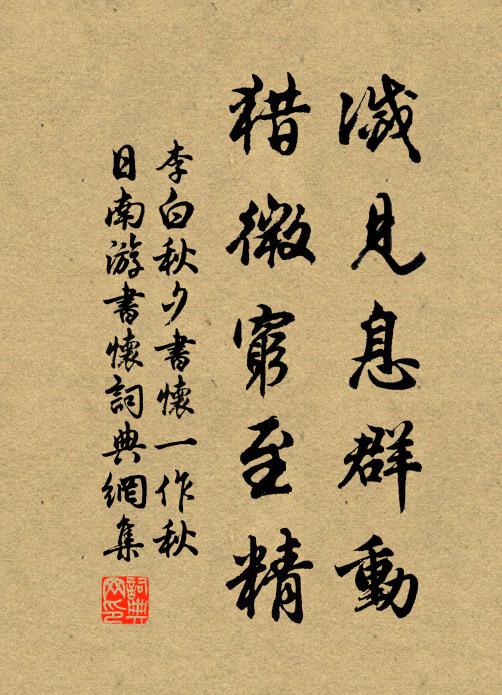 滅見息群動
猎微窮至精
李白秋夕書懷一作秋
日南游書懷詞典網集
詞典网印